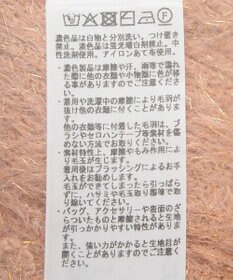 濃色品は白物と分別洗い。つけ置き
禁止。淡色品は蛍光増白剤禁止。中
性洗剤使用。アイロンあて布使用。
・濃色製品は摩擦や汗、雨等で濡れ
た際に他の衣類や小物類に色が移
る事がありますのでご注意くださ
い。
・着用や洗濯中の摩擦により毛羽が
抜け他の衣類に付着することがあ
ります。
・他の衣類等に付着した毛羽は、ブ
ラシやセロハンテープ等素材を傷
めない方法でお取りください。
・素材特性上、摩擦やもみ作用によ
り毛玉が生じます。
着用後はブラッシングによるお手
入れをお勧めします。
毛玉ができてしまったら引っぱら
ずに、ハサミや毛玉取り器等で取
り除いてください。
・バッグ、アクセサリーや表面のざ
らついたものと摩擦されると生地
が引っかかりやすい特性がありま
す。
また、強い力がかかると生地目が
開く原因となりますのでご注意く